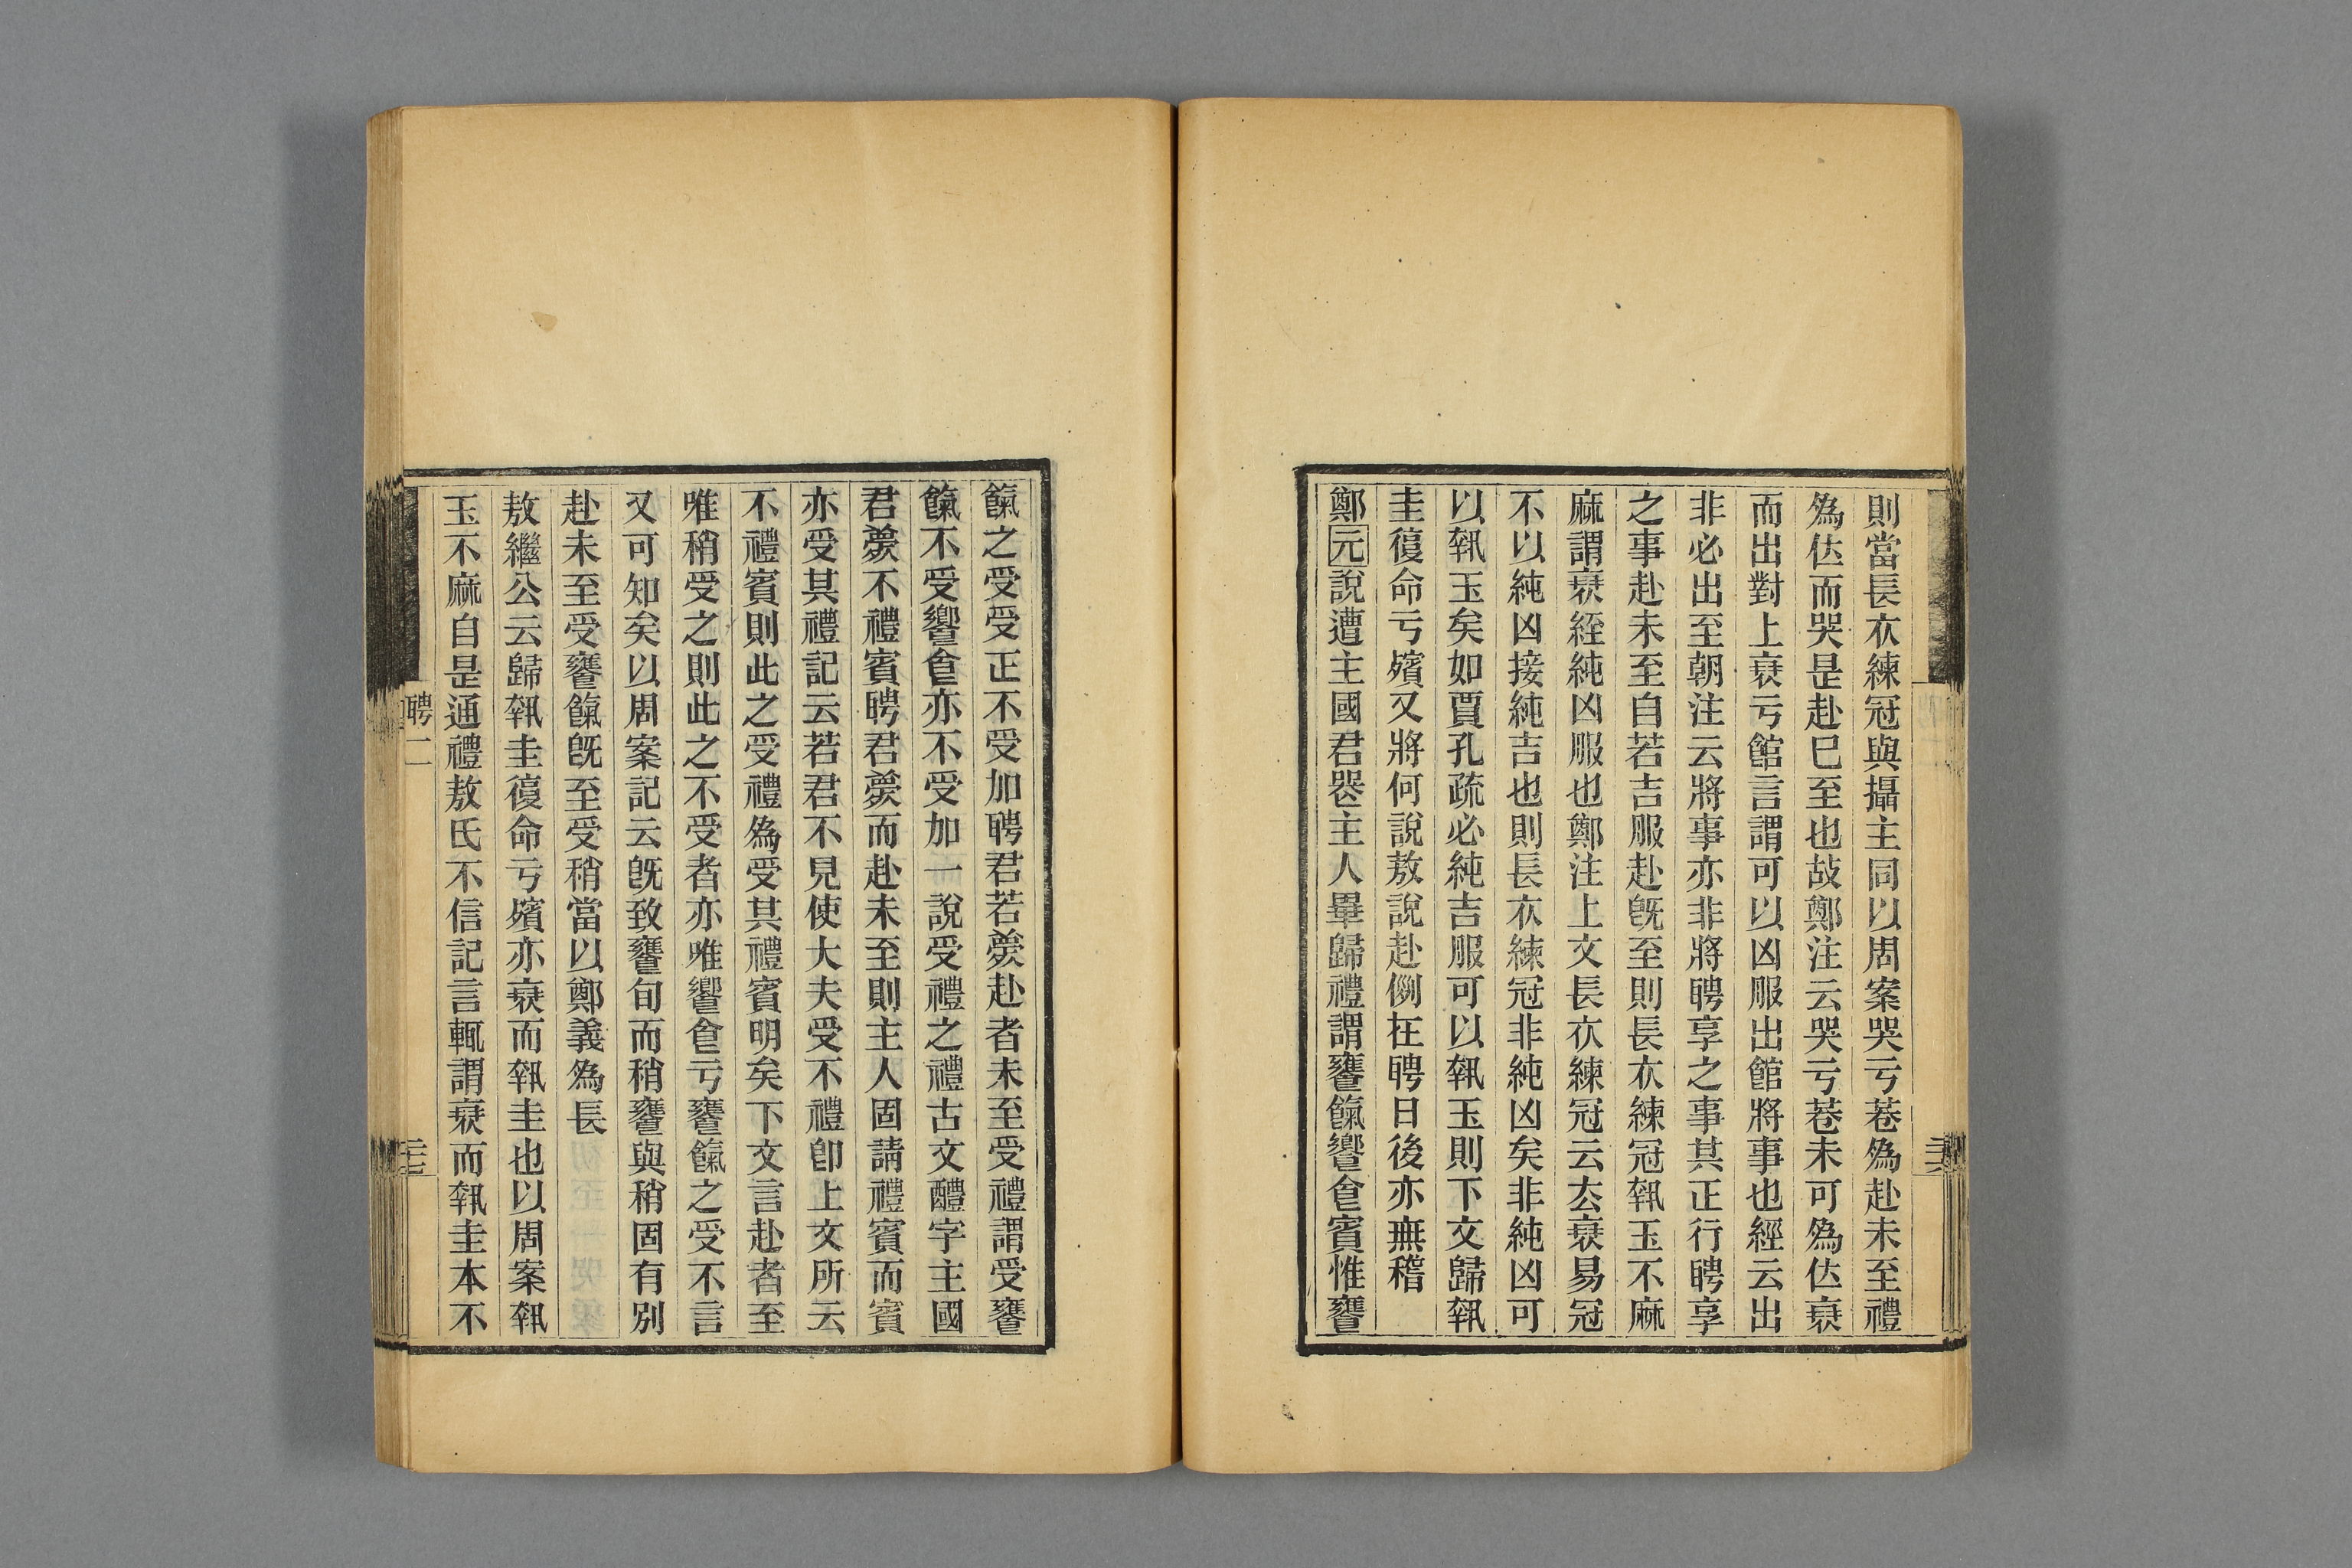 則當長衣練冠與攝主同以周案哭亏巷為赴未至禮
為位而哭是赴巳至也故鄭注云哭亏巷未可為位衰
而出對上衰亏館言謂可以凶服出館將事也經云出
非必出至朝注云將事亦非將聘享之事其正行聘享
之事赴未至自若吉服赴旣至則長衣練冠執玉不麻
麻謂衰絰純凶服也鄭注上文長衣練冠云去衰易冠
不以純凶接純吉也則長衣練冠非純凶矣非純凶可
以執玉矣如賈孔疏必純吉服可以執玉則下文歸執
圭復命亏殯又將何說敖說赴例在聘日後亦無稽
鄭元說遭主國君喪主人畢歸禮謂饔餼饗食賓惟饔
餼之受受正不受加聘君若薨赴者未至受禮謂受饔
餼不受饗食亦不受加一說受禮之禮古文醴字主國
君薨不禮賓聘君薨而赴未至則主人固請禮賓而賓
亦受其禮記云若君不見使大夫受不禮卽上文所云
不禮賓則此之受禮為受其禮賓明矣下文言赴者至
唯稍受之則此之不受者亦唯饗食亏饔餼之受不言
又可知矣以周案記云旣致饔旬而稍饔與稍固有別
赴未至受饔餼旣至受稍當以鄭義為長
敖繼公云歸執圭復命亏殯亦衰而執圭也以周案執
玉不麻自是通禮敖氏不信記言輒謂衰而執圭本不
聘二